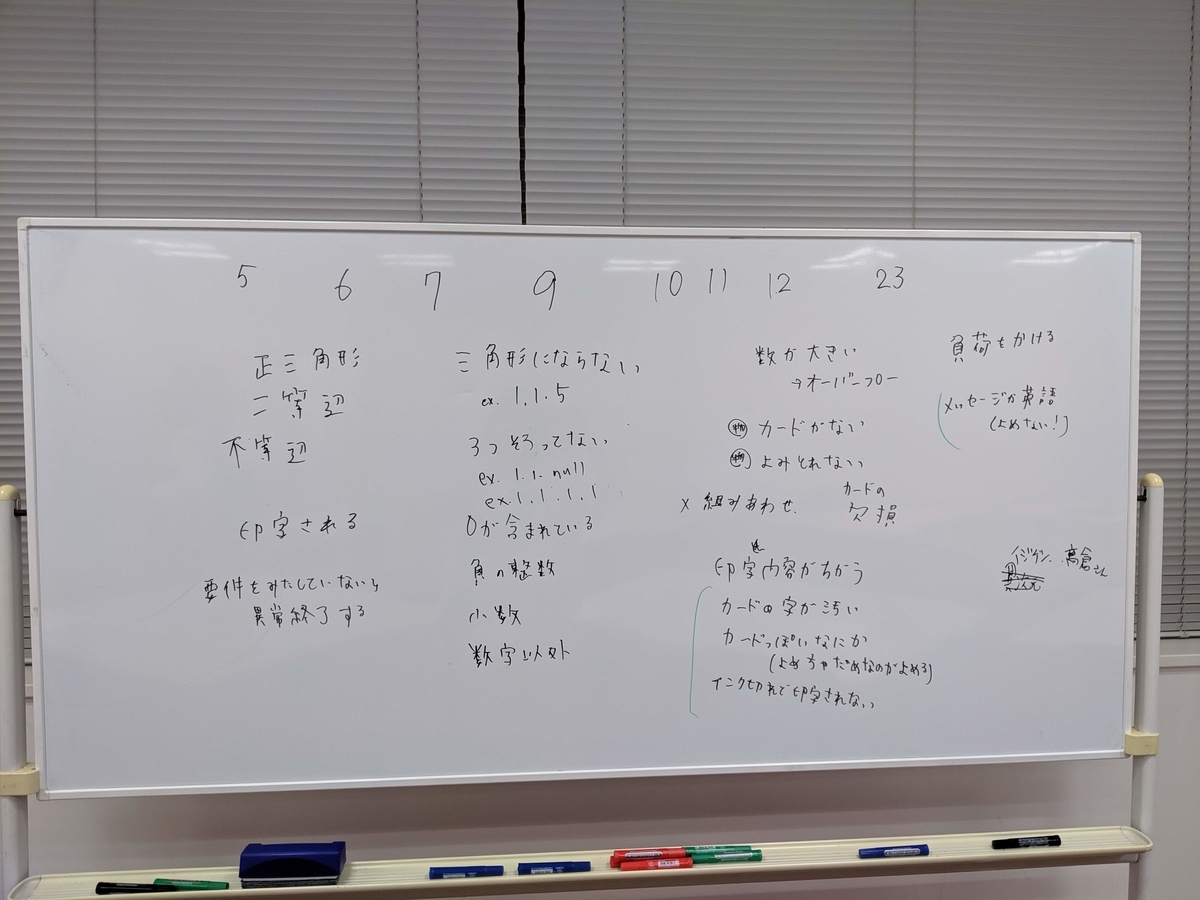 5 6 7 9 10 11 12 23
正三角形
二等辺
不等辺
印字される
要件をみたしていないら
異常終了する
三角形にならない
ex. 1.1.5
3つそろってない
ex. 1.1.null
ex. 1.1.1.1
0が含まれている
負の整数
小数
数字以外
数が大きい
→オーバーフロー
物 カードがない
物 よみとれない
× 組みあわせ.
カードの
欠損
印字内容がちがう
カードの字が汚い
カードっぽいなにか
(よめちゃだめなのがよめる)
インク切れで印字されない
負荷をかける
メッセージが英語
(よめない!)
高倉さん